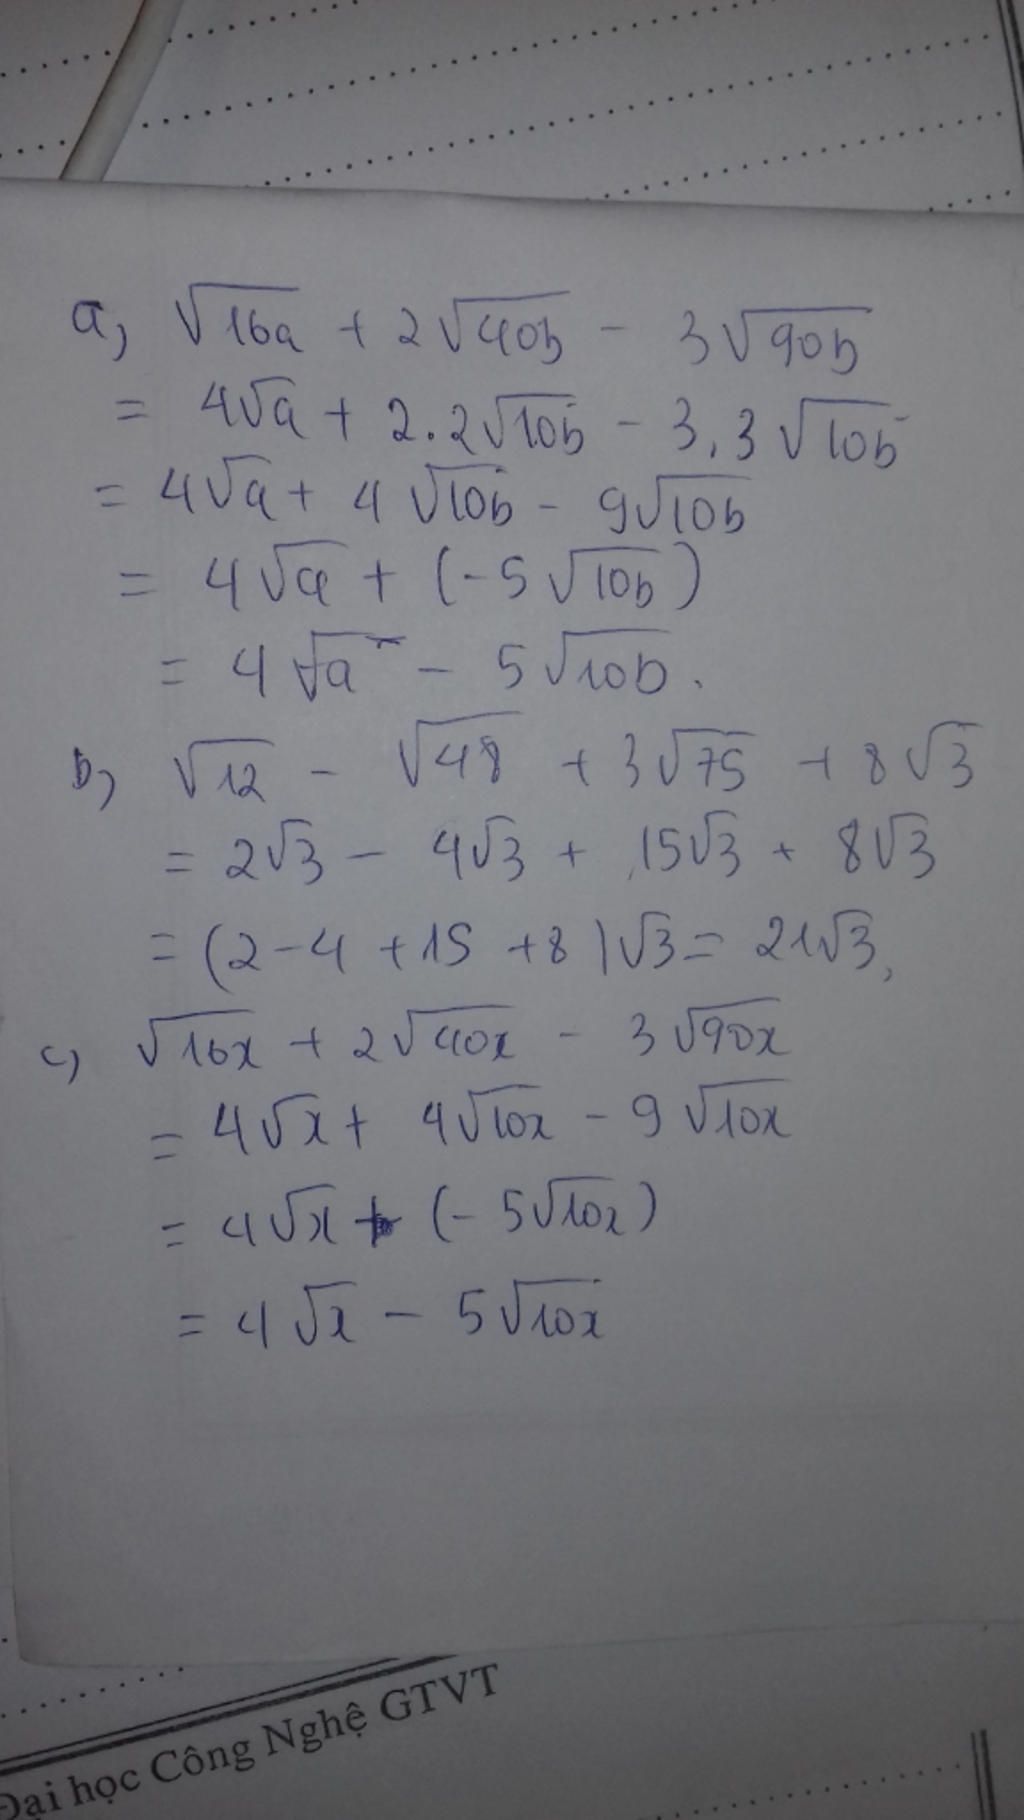 a, √16a + 2√40b - 3√90b
= 4√a + 2.2√10b - 3.3√10b
= 4√a + 4√10b - 9√10b
= 4√a + (-5√10b)
= 4√a - 5√10b.
b, √12 - √48 + 3√75 + 8√3
= 2√3 - 4√3 + 15√3 + 8√3
= (2-4 +15 +8)√3 = 21√3,
c, √16x + 2√40x - 3√90x
= 4√x + 4√10x - 9√10x
= 4√x + (-5√10x)
= 4√x - 5√10x
Đại học Công Nghệ GTVT